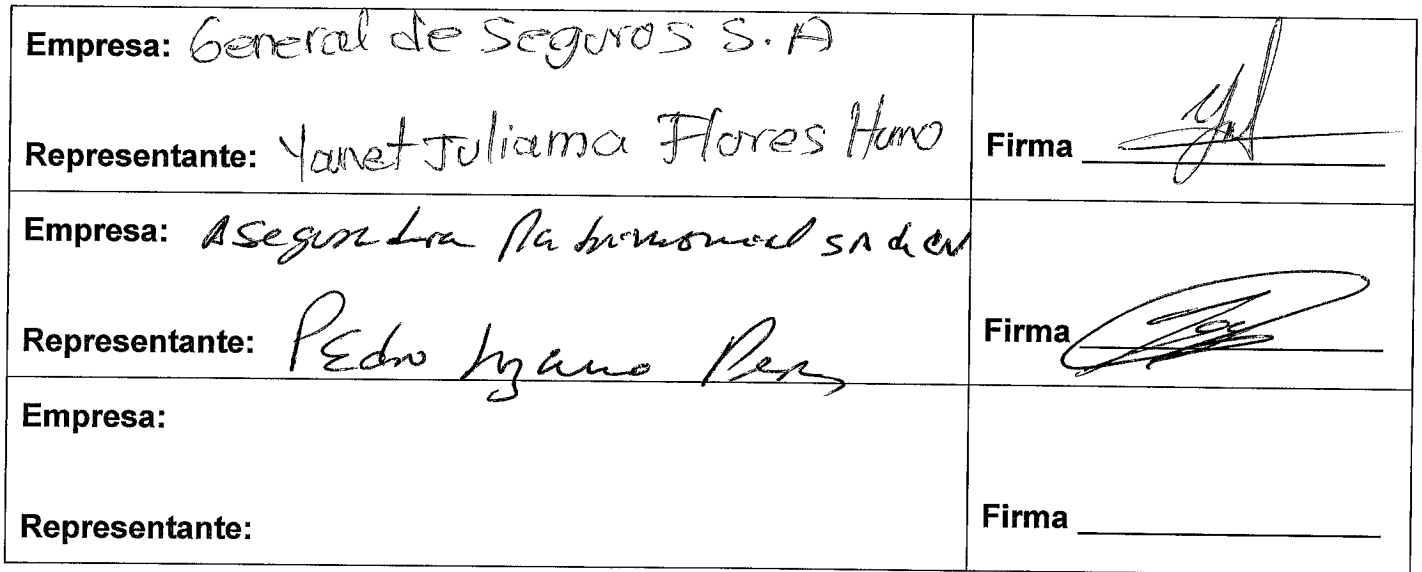 Empresa: General de Seguros S.A
Representante: Yanet Juliama Flores Firma
Empresa: Aseguradora Patrimonial SA de CV
Representante: Pedro Lozano Firma
Empresa:
Representante: Firma